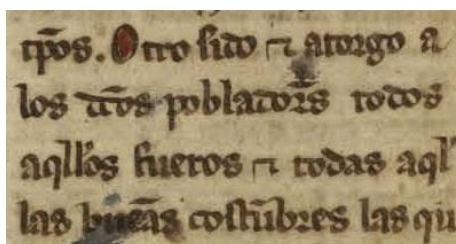 tp̃os. Otro sido ⁊ atorgo a
los dc̃os pobladores̃ todos
aq̃llos fueros ⁊ todas aq̃l
las buẽas costũbres las qu